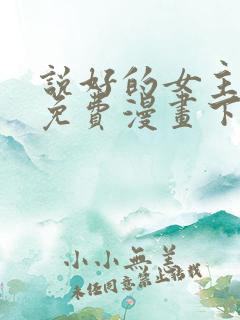 說好的女主
免費漫畫下
小小無羔
未經同意禁止轉載